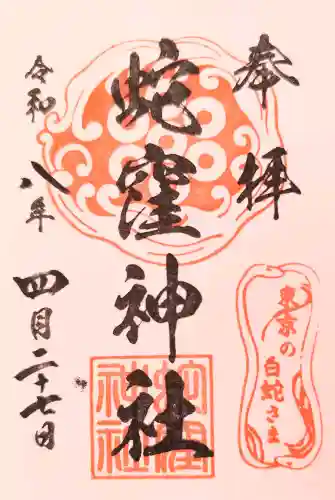 奉拝
蛇窪神社
令和八年
四月二十七日
東京の
白蛇さま
蛇窪
神社